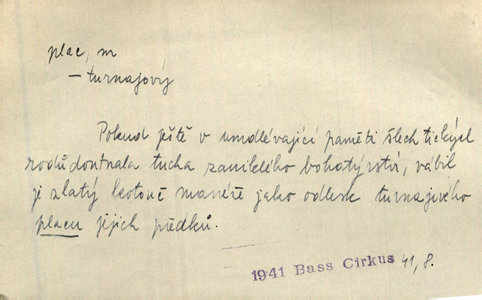 plac, m
– turnajový
Pokud ještě v umdlévající paměti šlechtických
rodů doutnala tucha zaniklého bohatýrství, vábil
je zlatý kotouč manéže jako odlesk turnajového
placu jejich předků.
1941 Bass Cirkus 41, 8.